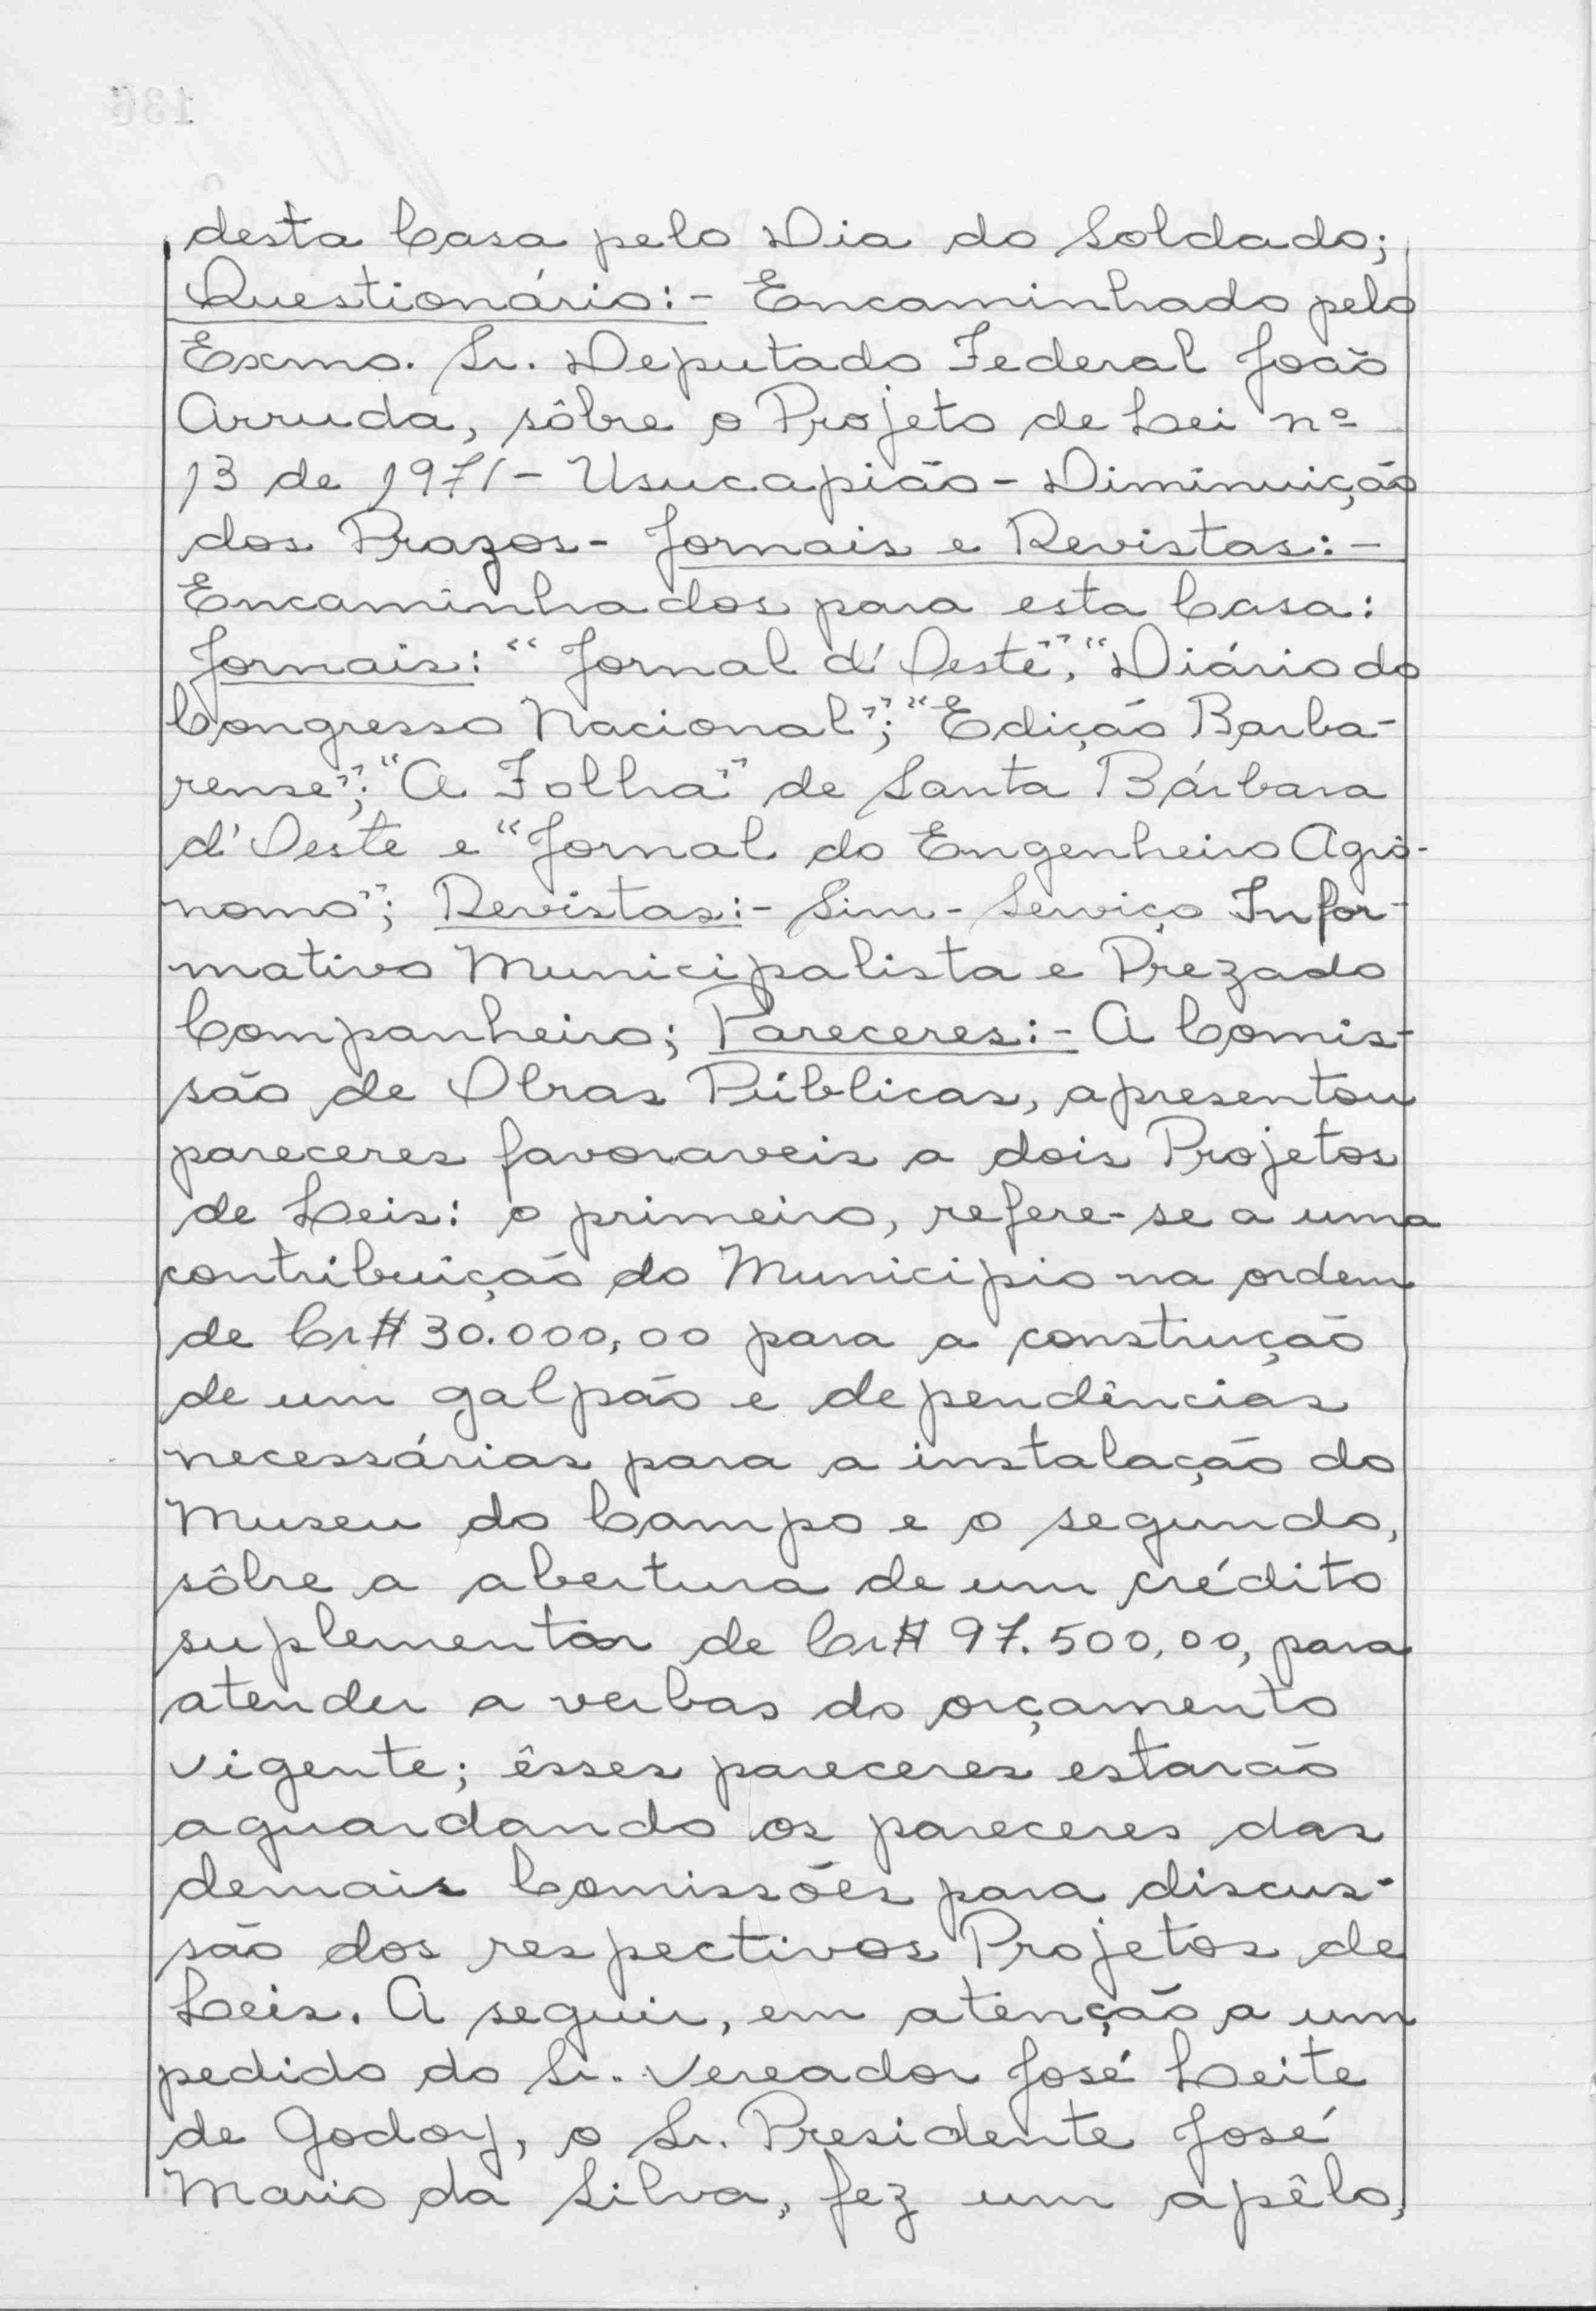 desta Casa pelo Dia do Soldado;
Questionário:- Encaminhado pelo
Exmo. Sr. Deputado Federal João
Arruda, sôbre o Projeto de Lei nº
13 de 1971- Usucapião - Diminuição
dos Prazos- Jornais e Revistas:-
Encaminhados para esta Casa:
Jornais: "Jornal d'Oeste", "Diário do
Congresso Nacional"; "Edição Barba-
rense"; "A Folha" de Santa Bárbara
d'Oeste e "Jornal do Engenheiro Agrô-
nomo"; Revistas:- Sim - Serviço Infor-
mativo Municipalista e Prezado
Companheiro; Pareceres:- A Comis-
são de Obras Públicas, apresentou
pareceres favoraveis a dois Projetos
de Leis: o primeiro, refere-se a uma
contribuição do Municipio na ordem
de Cr$ 30.000,00 para a construção
de um galpão e dependências
necessárias para a instalação do
Museu do Campo e o segundo,
sôbre a abertura de um crédito
suplementar de Cr$ 97.500,00, para
atender a verbas do orçamento
vigente; êsses pareceres estarão
aguardando os pareceres das
demais Comissões para discus-
são dos respectivos Projetos de
Leis. A seguir, em atenção a um
pedido do Sr. Vereador José Leite
de Godoy, o Sr. Presidente José
Mario da Silva, fez um apêlo,